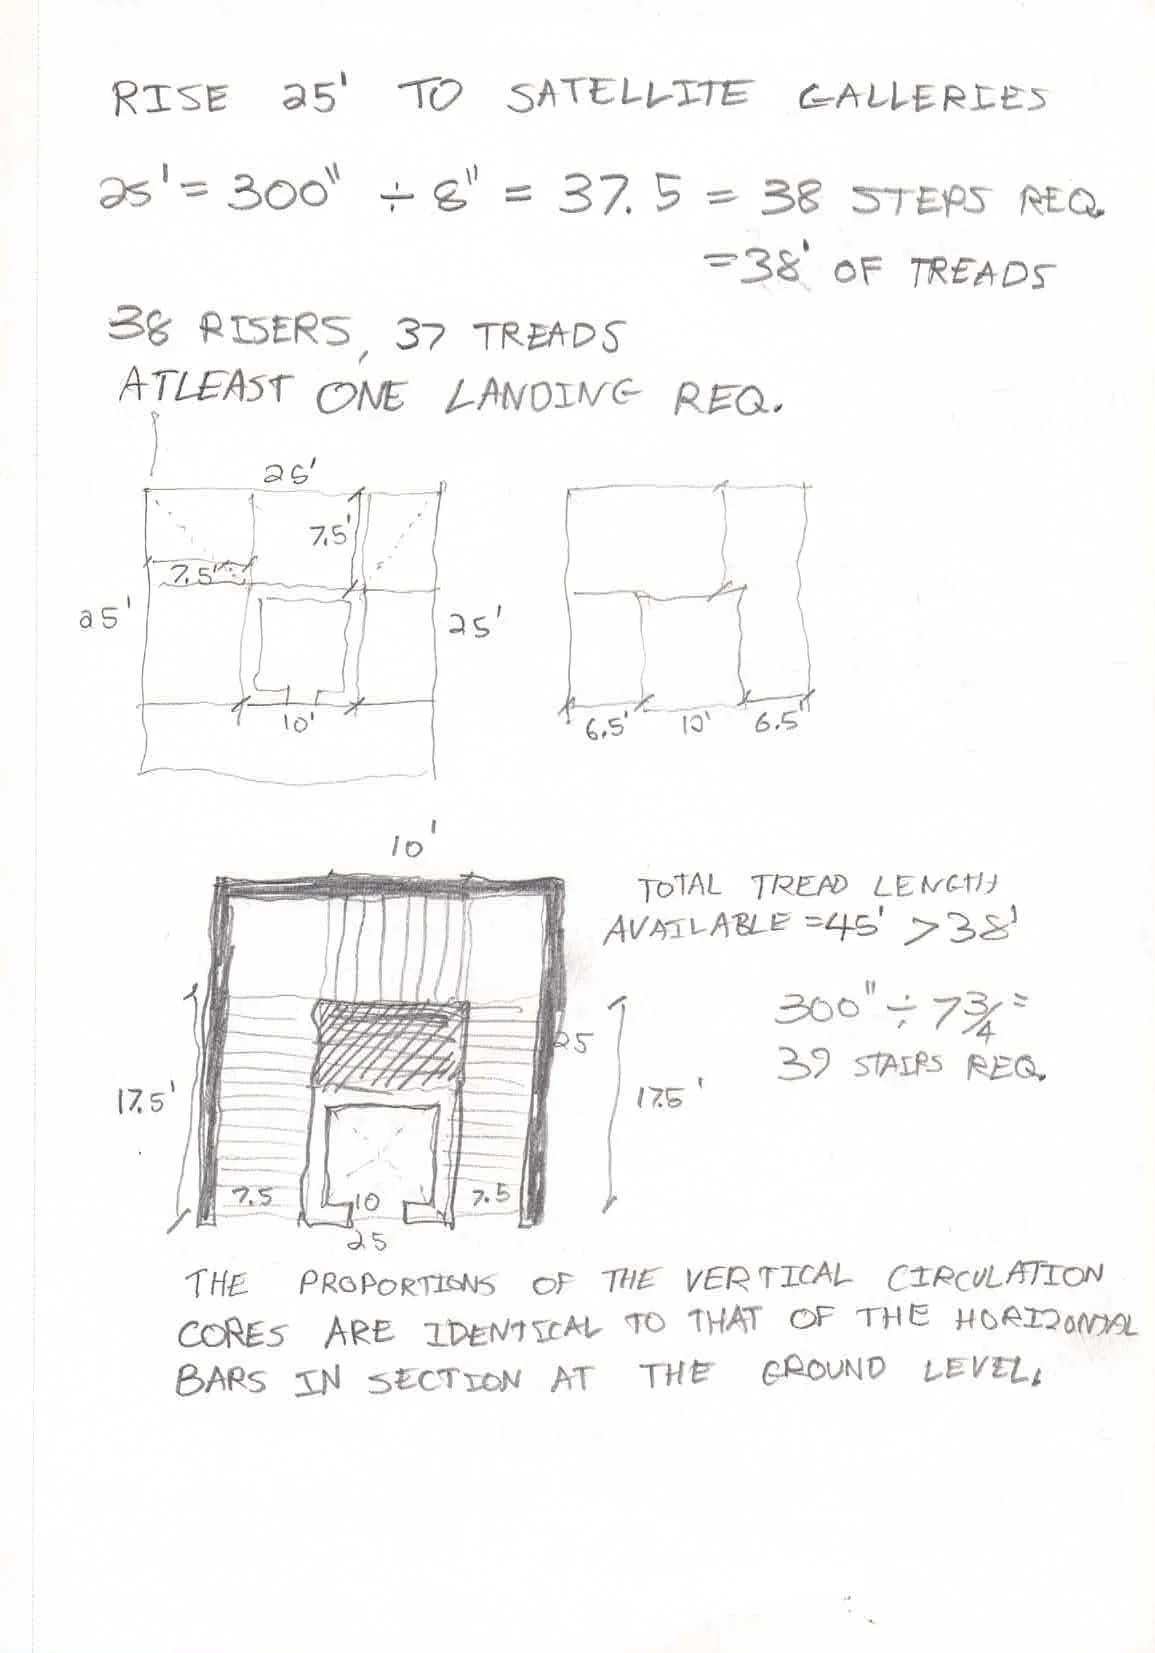 RISE 25' TO SATELLITE GALLERIES
25' = 300" ÷ 8" = 37.5 = 38 STEPS REQ.
=38' OF TREADS
38 RISERS, 37 TREADS
ATLEAST ONE LANDING REQ.
25'
7.5'
7.5'
25'
25'
10'
6.5'
10'
6.5'
10'
TOTAL TREAD LENGTH
AVAILABLE =45' >38'
300" ÷ 7 3/4 =
39 STAIRS REQ.
25
17.5'
17.5'
7.5
10
7.5
25
THE PROPORTIONS OF THE VERTICAL CIRCULATION
CORES ARE IDENTICAL TO THAT OF THE HORIZONTAL
BARS IN SECTION AT THE GROUND LEVEL.